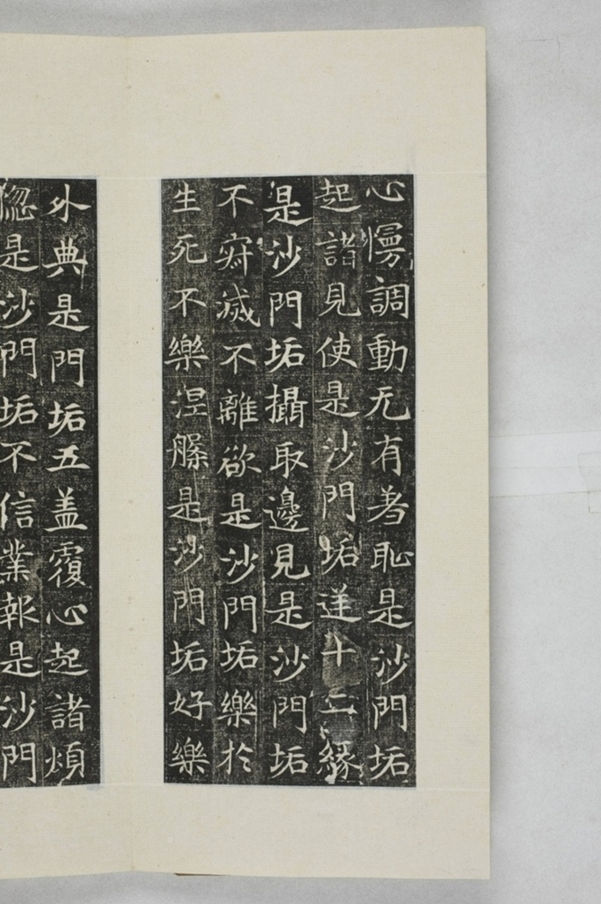 心慢調動无有羞恥是沙門垢
起諸見使是沙門垢逆十二緣
是沙門垢攝取邊見是沙門垢
不寂滅不離欲是沙門垢樂於
生死不樂涅槃是沙門垢好樂
外典是門垢五盖覆心起諸煩
惚是沙門垢不信業報是沙門